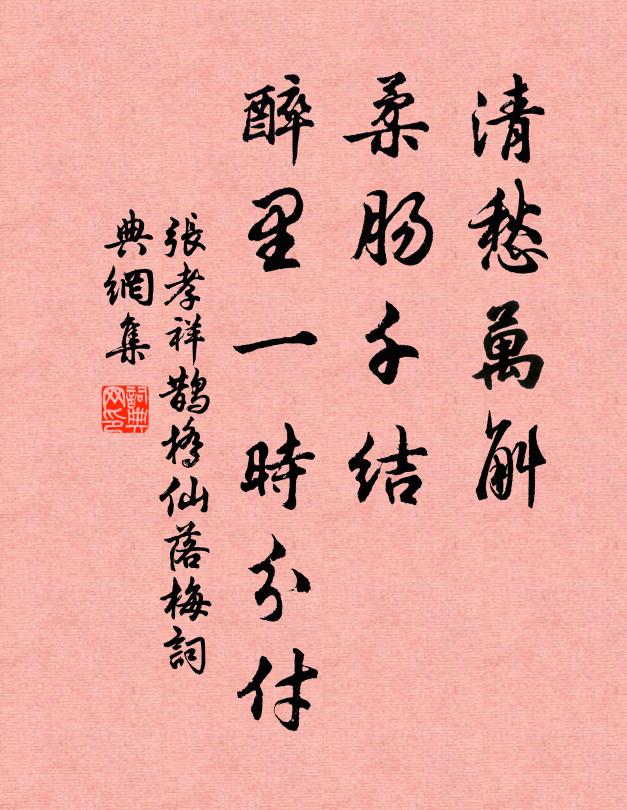 清愁萬斛
柔肠千结
醉里一時分付
張孝祥鵲橋仙落梅詞
典網集
詞典网印